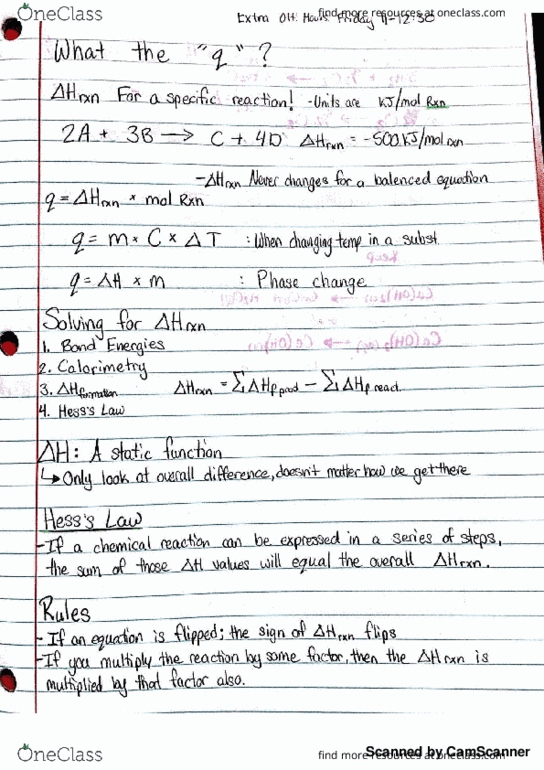 OneClass
find more resources at oneclass.com
Extra Off. Hours: Friday 11-12:30
What the "q"?
ΔHrxn For a specific reaction! -Units are KJ/mol Rxn
2A + 3B → C + 4D ΔHrxn = -500KJ/mol rxn
-ΔHrxn Never changes for a balenced equation
q = ΔHrxn × mol Rxn
q = m × C × ΔT : When changing temp in a subst.
q = ΔH × m : Phase change
Solving for ΔHrxn
1. Bond Energies
2. Calorimetry
3. ΔHformation ΔHrxn = ΣΔHf prod - ΣΔHf react.
4. Hess's Law
ΔH: A static function
↳ Only look at overall difference, doesn't matter how we get there
Hess's Law
-If a chemical reaction can be expressed in a series of steps,
the sum of those ΔH values will equal the overall ΔHrxn.
Rules
- If an equation is flipped; the sign of ΔHrxn flips
-If you multiply the reaction by some factor, then the ΔHrxn is
multiplied by that factor also.
Scanned by CamScanner
OneClass
find more resources at oneclass.com